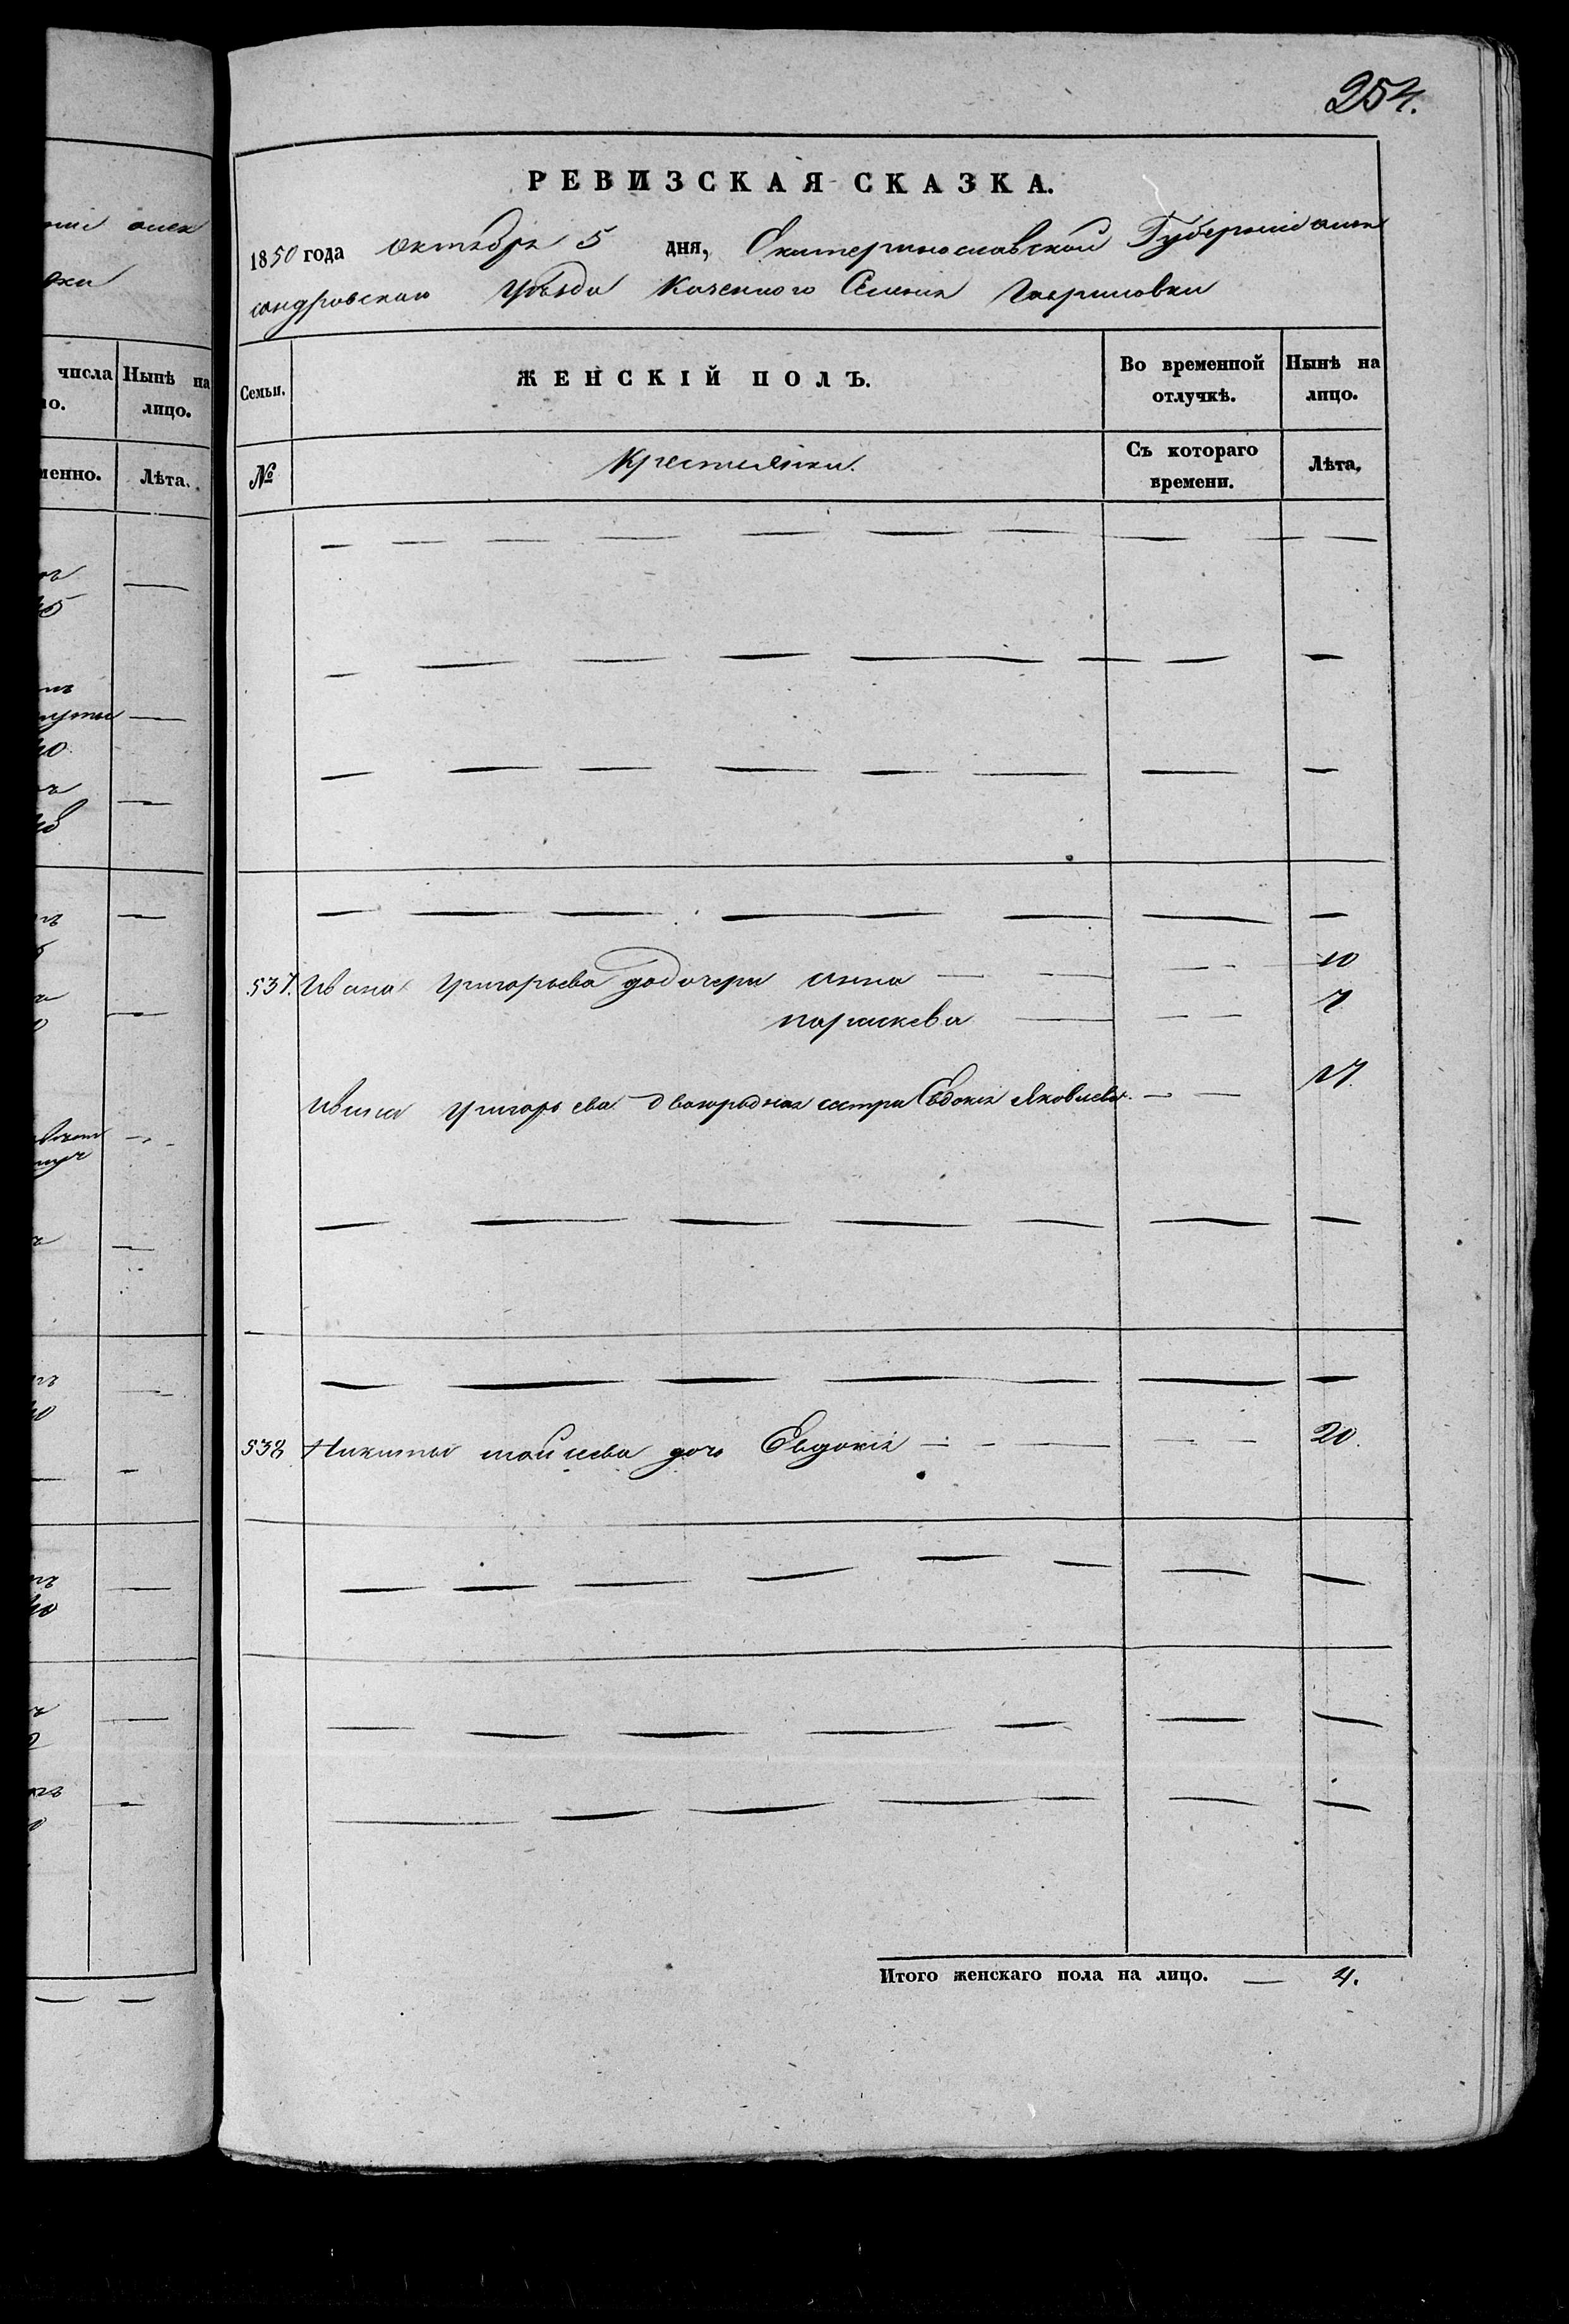 254.
РЕВИЗСКАЯ СКАЗКА.
1850 года октября 5 дня, Екатеринославской Губерніи алек
сандровскаго уѣзда казенного Селенія Гавриловки
Семьи.
ЖЕНСКІЙ ПОЛЪ.
Во временной отлучкѣ.
Нынѣ на лицо.
№
Крестьянки.
Съ котораго времени.
Лѣта.
537. Ивана Григорьева дочери Анна 10
парашкева 7
Ивана Григорьева двоюродная сестра Евдокія Яковлева 17.
538 Никиты дочь Евдокія 20.
Итого женскаго пола на лицо. — 4.
числа
Нынѣ на
лицо.
Лѣта.